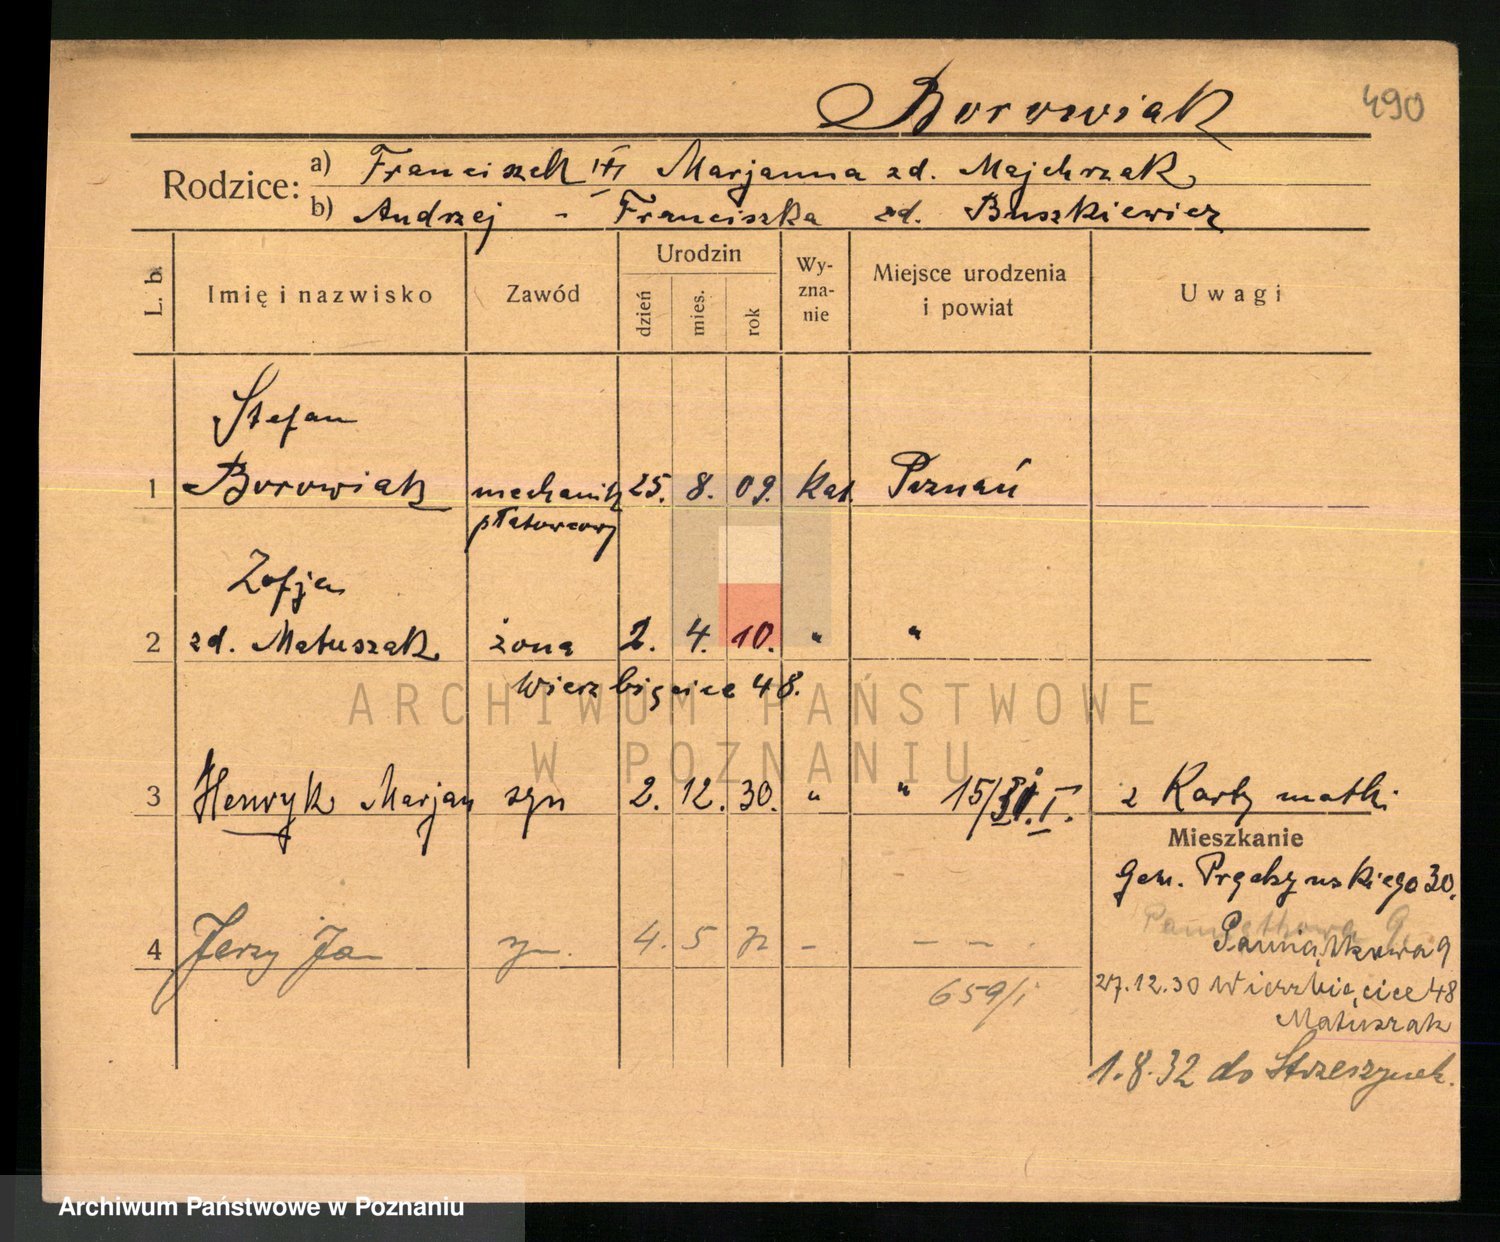 Borowiak 490
Rodzice: a) Franciszek Marjanna zd. Majchrzak
b) Andrzej - Franciszka zd. Buszkiewicz
L. b. Imię i nazwisko Zawód Urodzin dzień mies. rok Wy-zna-nie Miejsce urodzenia i powiat Uwagi
Stefan
1 Borowiak mechanik 25. 8. 09. Kat. Poznań
płatowcowy
Zofja
2 zd. Matuszak żona 2. 4. 10. " "
Wierzbięcice 48.
3 Henryk Marjan syn 2. 12. 30. " " z Karty matki
Mieszkanie
Gen. Prądzyńskiego 30.
Pamiątkowa 9
4 Jerzy 4. 5 - - -
Pamiątkowa 9
659/i 27.12.30 Wierzbięcice 48
Matuszak
1.8.32 do Strzeszynek.
ARCHIWUM PAŃSTWOWE
W POZNANIU
Archiwum Państwowe w Poznaniu